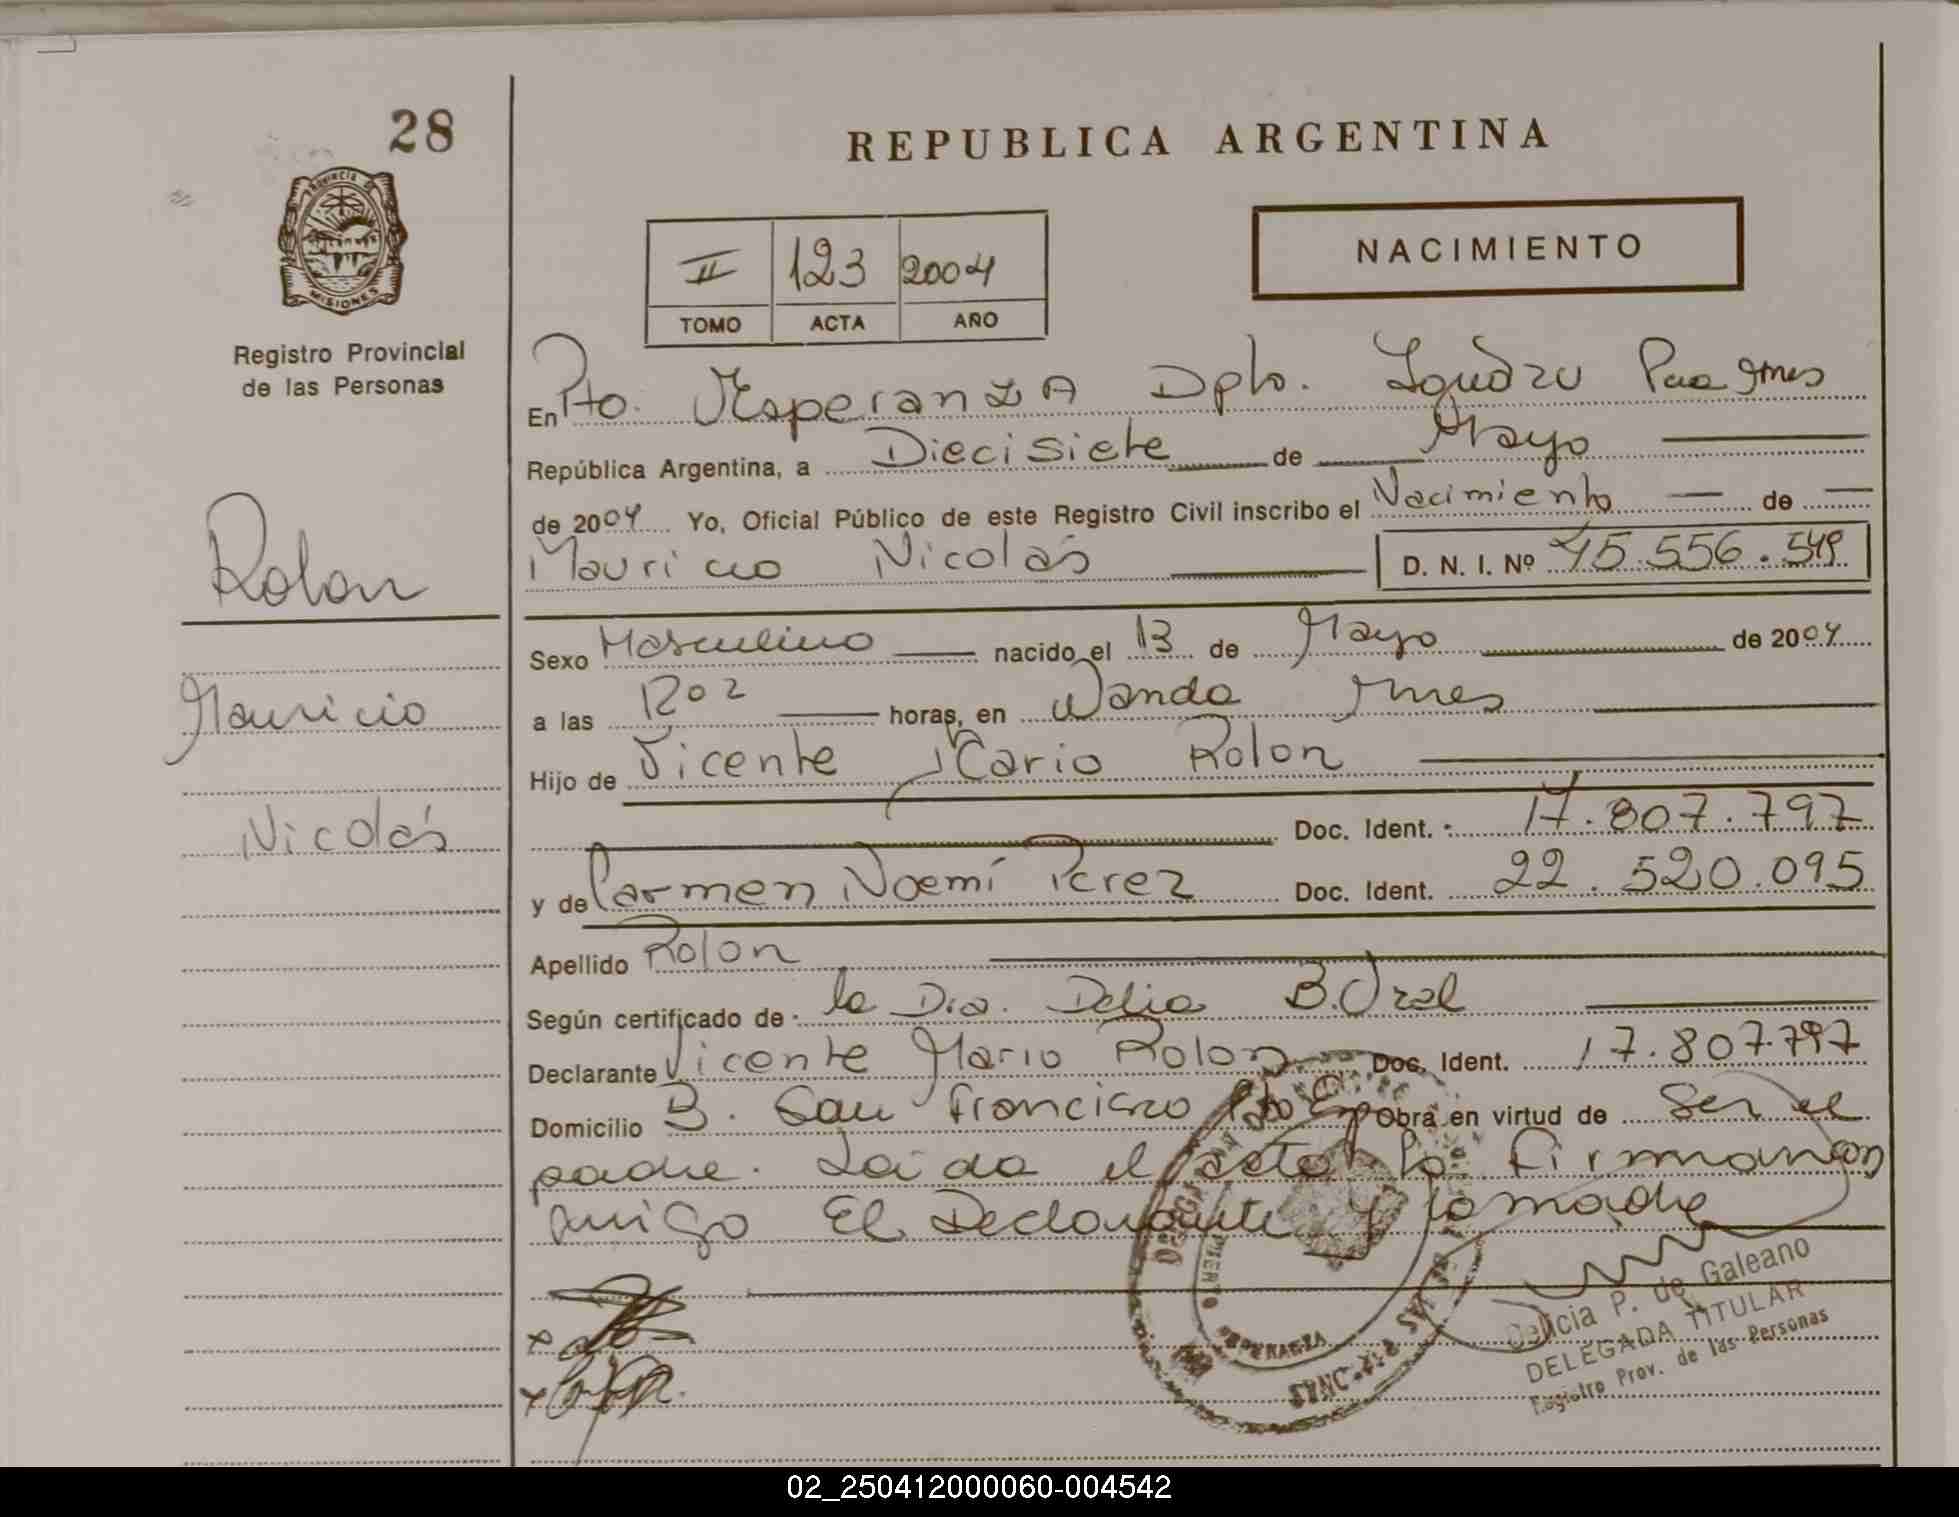 28
REPUBLICA ARGENTINA
PROVINCIA DE
MISIONES
NACIMIENTO
II 123 2004
TOMO ACTA AÑO
Registro Provincial
de las Personas
En Pto. Esperanza Dpto. Iguazu Pcia Mnes
República Argentina, a Diecisiete de Mayo
de 2004 Yo, Oficial Público de este Registro Civil inscribo el Nacimiento de
Mauricio Nicolás D. N. I. Nº 45.556.549
Rolon
Sexo Masculino nacido el 13 de Mayo de 2004
a las 12 02 horas, en Wanda Mnes
Mauricio
Hijo de Vicente Mario Rolon
Doc. Ident. 17.807.797
Nicolás
y de Carmen Noemí Perez Doc. Ident. 22.520.095
Apellido Rolon
Según certificado de la Dra. Delia B.
Declarante Vicente Mario Rolon Doc. Ident. 17.807.797
Domicilio B. San Francisco Pto Esp Obra en virtud de Ser el
padre. Leida el acta la firman con
migo El Declarante y la madre
ESPERANZA
Delicia P. de Galeano
DELEGADA TITULAR
Registro Prov. de las Personas
02_250412000060-004542